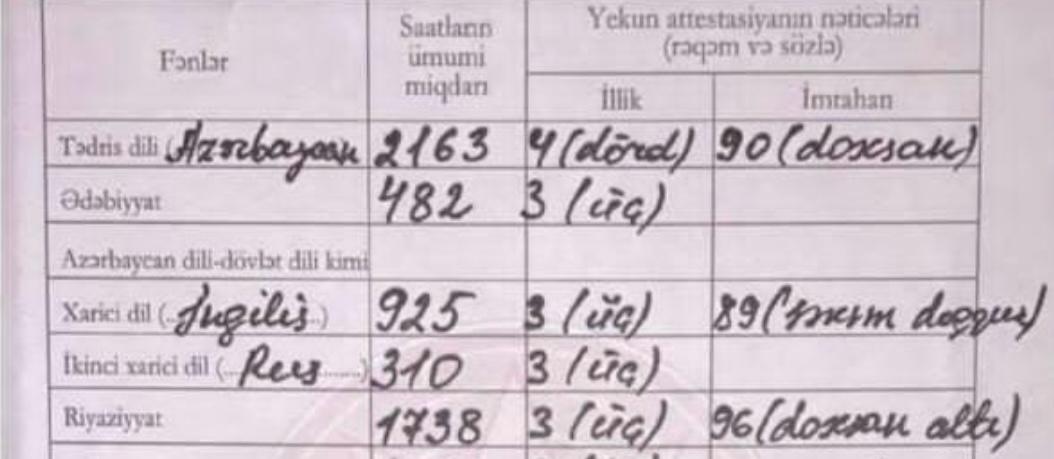 Fənlər
Saatların ümumi miqdarı
Yekun attestasiyanın nəticələri (rəqəm və sözlə)
İllik
İmtahan
Tədris dili (Azərbaycan) 2163 4 (dörd) 90 (doxsan)
Ədəbiyyat 482 3 (üç)
Azərbaycan dili-dövlət dili kimi
Xarici dil (..İngilis..) 925 3 (üç) 89 (
İkinci xarici dil (...Rus......) 310 3 (üç)
Riyaziyyat 1738 3 (üç) 96 (doxsan altı)